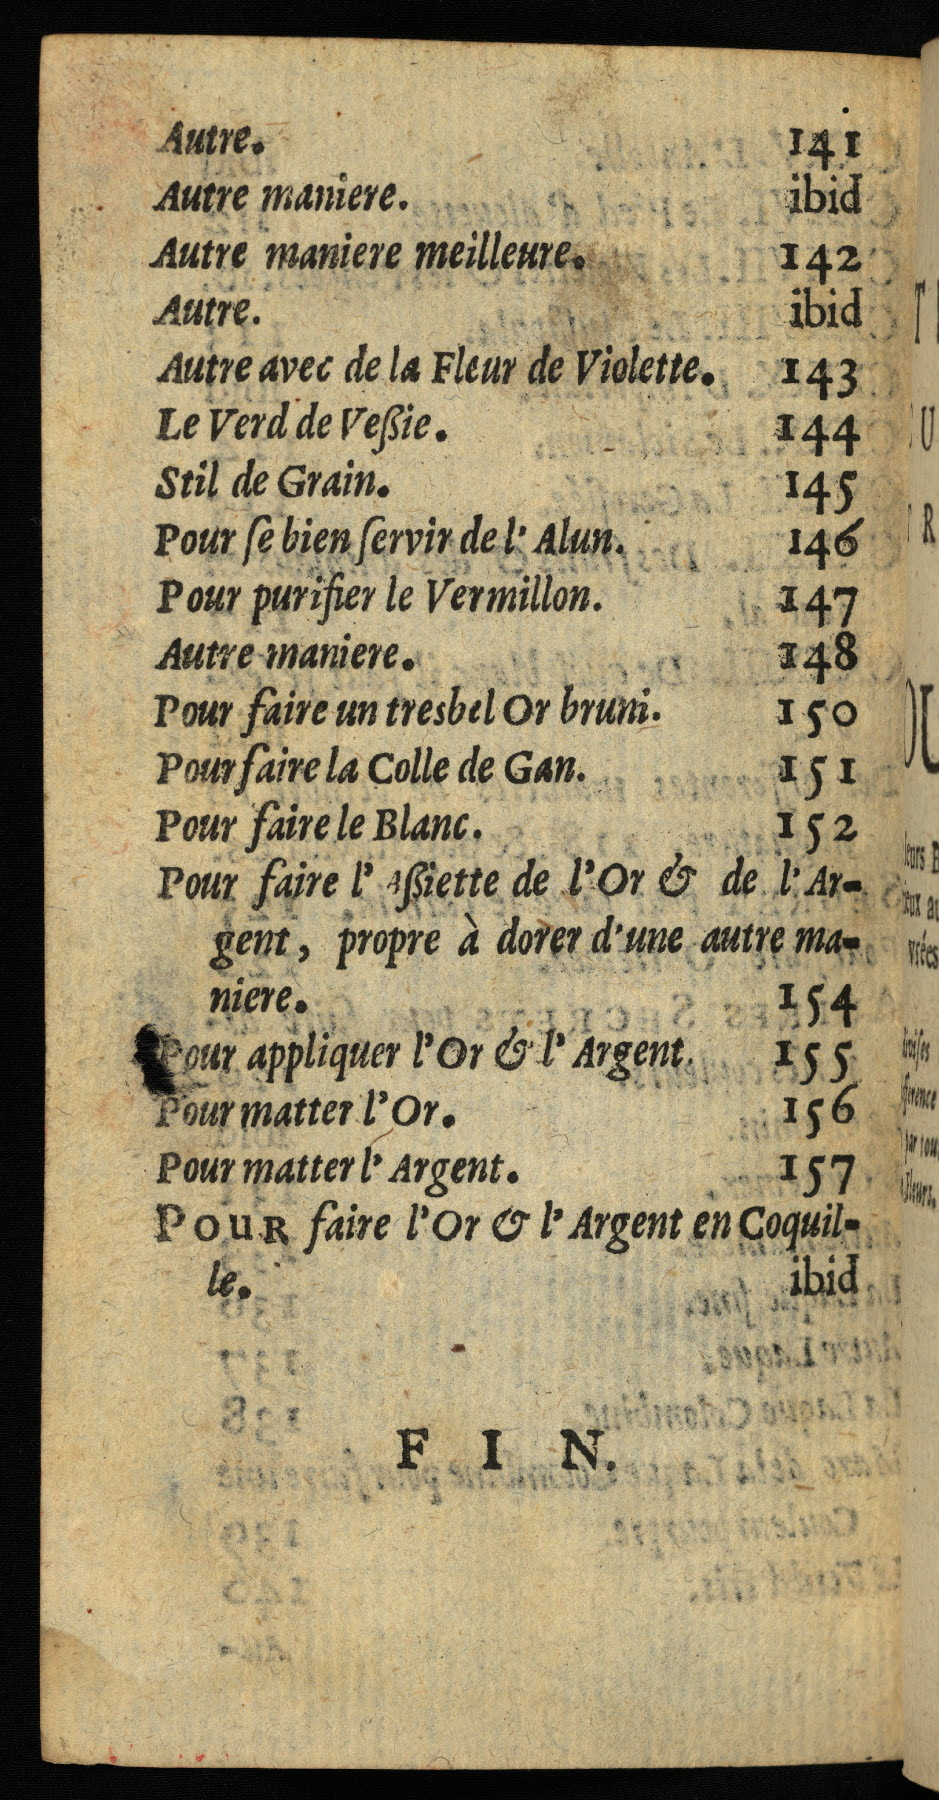 Autre. 141
Autre maniere. ibid
Autre maniere meilleure. 142
Autre. ibid
Autre avec de la Fleur de Violette. 143
Le Verd de Veßie. 144
Stil de Grain. 145
Pour ſe bien ſervir de l'Alun. 146
Pour purifier le Vermillon. 147
Autre maniere. 148
Pour faire un tresbel Or bruni. 150
Pour faire la Colle de Gan. 151
Pour faire le Blanc. 152
Pour faire l'Aßiette de l'Or & de l'Ar-
gent, propre à dorer d'une autre ma-
niere. 154
Pour appliquer l'Or & l'Argent. 155
Pour matter l'Or. 156
Pour matter l'Argent. 157
POUR faire l'Or & l'Argent en Coquil-
le. ibid
FIN.